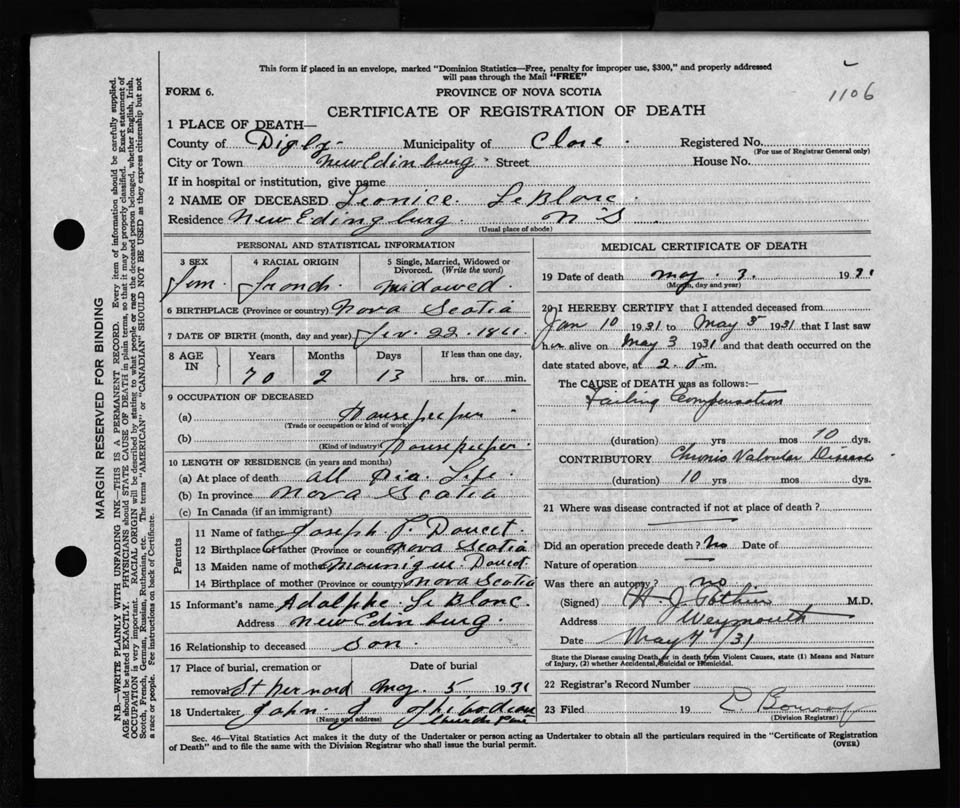 This form if placed in an envelope, marked "Dominion Statistics—Free, penalty for improper use, $300," and properly addressed
will pass through the Mail "FREE"
FORM 6.
PROVINCE OF NOVA SCOTIA
1106
CERTIFICATE OF REGISTRATION OF DEATH
1 PLACE OF DEATH—
County of Digby Municipality of Clare Registered No.
(For use of Registrar General only)
City or Town New Edinburg Street House No.
If in hospital or institution, give name
2 NAME OF DECEASED Leonice LeBlanc
Residence New Edingburg N S
(Usual place of abode)
PERSONAL AND STATISTICAL INFORMATION
3 SEX 4 RACIAL ORIGIN 5 Single, Married, Widowed or
Divorced. (Write the word)
Fem French Widowed
6 BIRTHPLACE (Province or country) Nova Scotia
7 DATE OF BIRTH (month, day and year) 22. 1861
8 AGE IN Years Months Days If less than one day,
70 2 13 hrs. or min.
9 OCCUPATION OF DECEASED
(a) Housekeeper
(Trade or occupation or kind of work)
(b) Housekeeper
(Kind of industry)
10 LENGTH OF RESIDENCE (in years and months)
(a) At place of death all Life
(b) In province Nova Scotia
(c) In Canada (if an immigrant)
Parents
11 Name of father Joseph Doucet
12 Birthplace of father (Province or country) Nova Scotia
13 Maiden name of mother Doucet
14 Birthplace of mother (Province or country) Nova Scotia
15 Informant's name Adolphe LeBlanc
Address New Edinburg
16 Relationship to deceased son
17 Place of burial, cremation or Date of burial
removal St Bernard May 5 1931
18 Undertaker John J Thibodeau
(Name and address) Church Point
MEDICAL CERTIFICATE OF DEATH
19 Date of death May 3. 1931
(Month, day and year)
20 I HEREBY CERTIFY that I attended deceased from
Jan 10 1931 to May 3 1931 that I last saw
her alive on May 3 1931 and that death occurred on the
date stated above, at m.
The CAUSE of DEATH was as follows:—
Failing Compensation
(duration) yrs mos 10 dys.
CONTRIBUTORY Chronic Valvular Disease
(duration) 10 yrs mos dys.
21 Where was disease contracted if not at place of death?
Did an operation precede death? No Date of
Nature of operation
Was there an autopsy? no
(Signed) H. J. Pothier M.D.
Address Weymouth
Date May 7/31
State the Disease causing Death, or in death from Violent Causes, state (1) Means and Nature
of Injury, (2) whether Accidental, Suicidal or Homicidal.
22 Registrar's Record Number
23 Filed 19
(Division Registrar)
Sec. 46—Vital Statistics Act makes it the duty of the Undertaker or person acting as Undertaker to obtain all the particulars required in the "Certificate of Registration
of Death" and to file the same with the Division Registrar who shall issue the burial permit. (OVER)
MARGIN RESERVED FOR BINDING
N.B.—WRITE PLAINLY WITH UNFADING INK—THIS IS A PERMANENT RECORD. Every item of information should be carefully supplied.
AGE should be stated EXACTLY. PHYSICIANS should STATE CAUSE OF DEATH in plain terms, so that it may be properly classified. Exact statement of
OCCUPATION is very important. RACIAL ORIGIN will be described by stating to what people or race the deceased person belonged, whether English, Irish,
Scotch, French, German, Russian, Ruthenian, etc. The terms "AMERICAN" or "CANADIAN" SHOULD NOT BE USED as they express citizenship but not
a race or people. See instructions on back of Certificate.